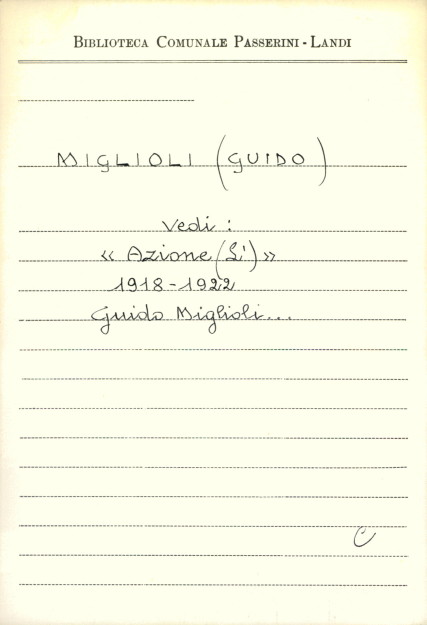 BIBLIOTECA COMUNALE PASSERINI - LANDI
MIGLIOLI (GUIDO)
Vedi :
« Azione (L') »
1918 - 1922
Guido Miglioli...
C